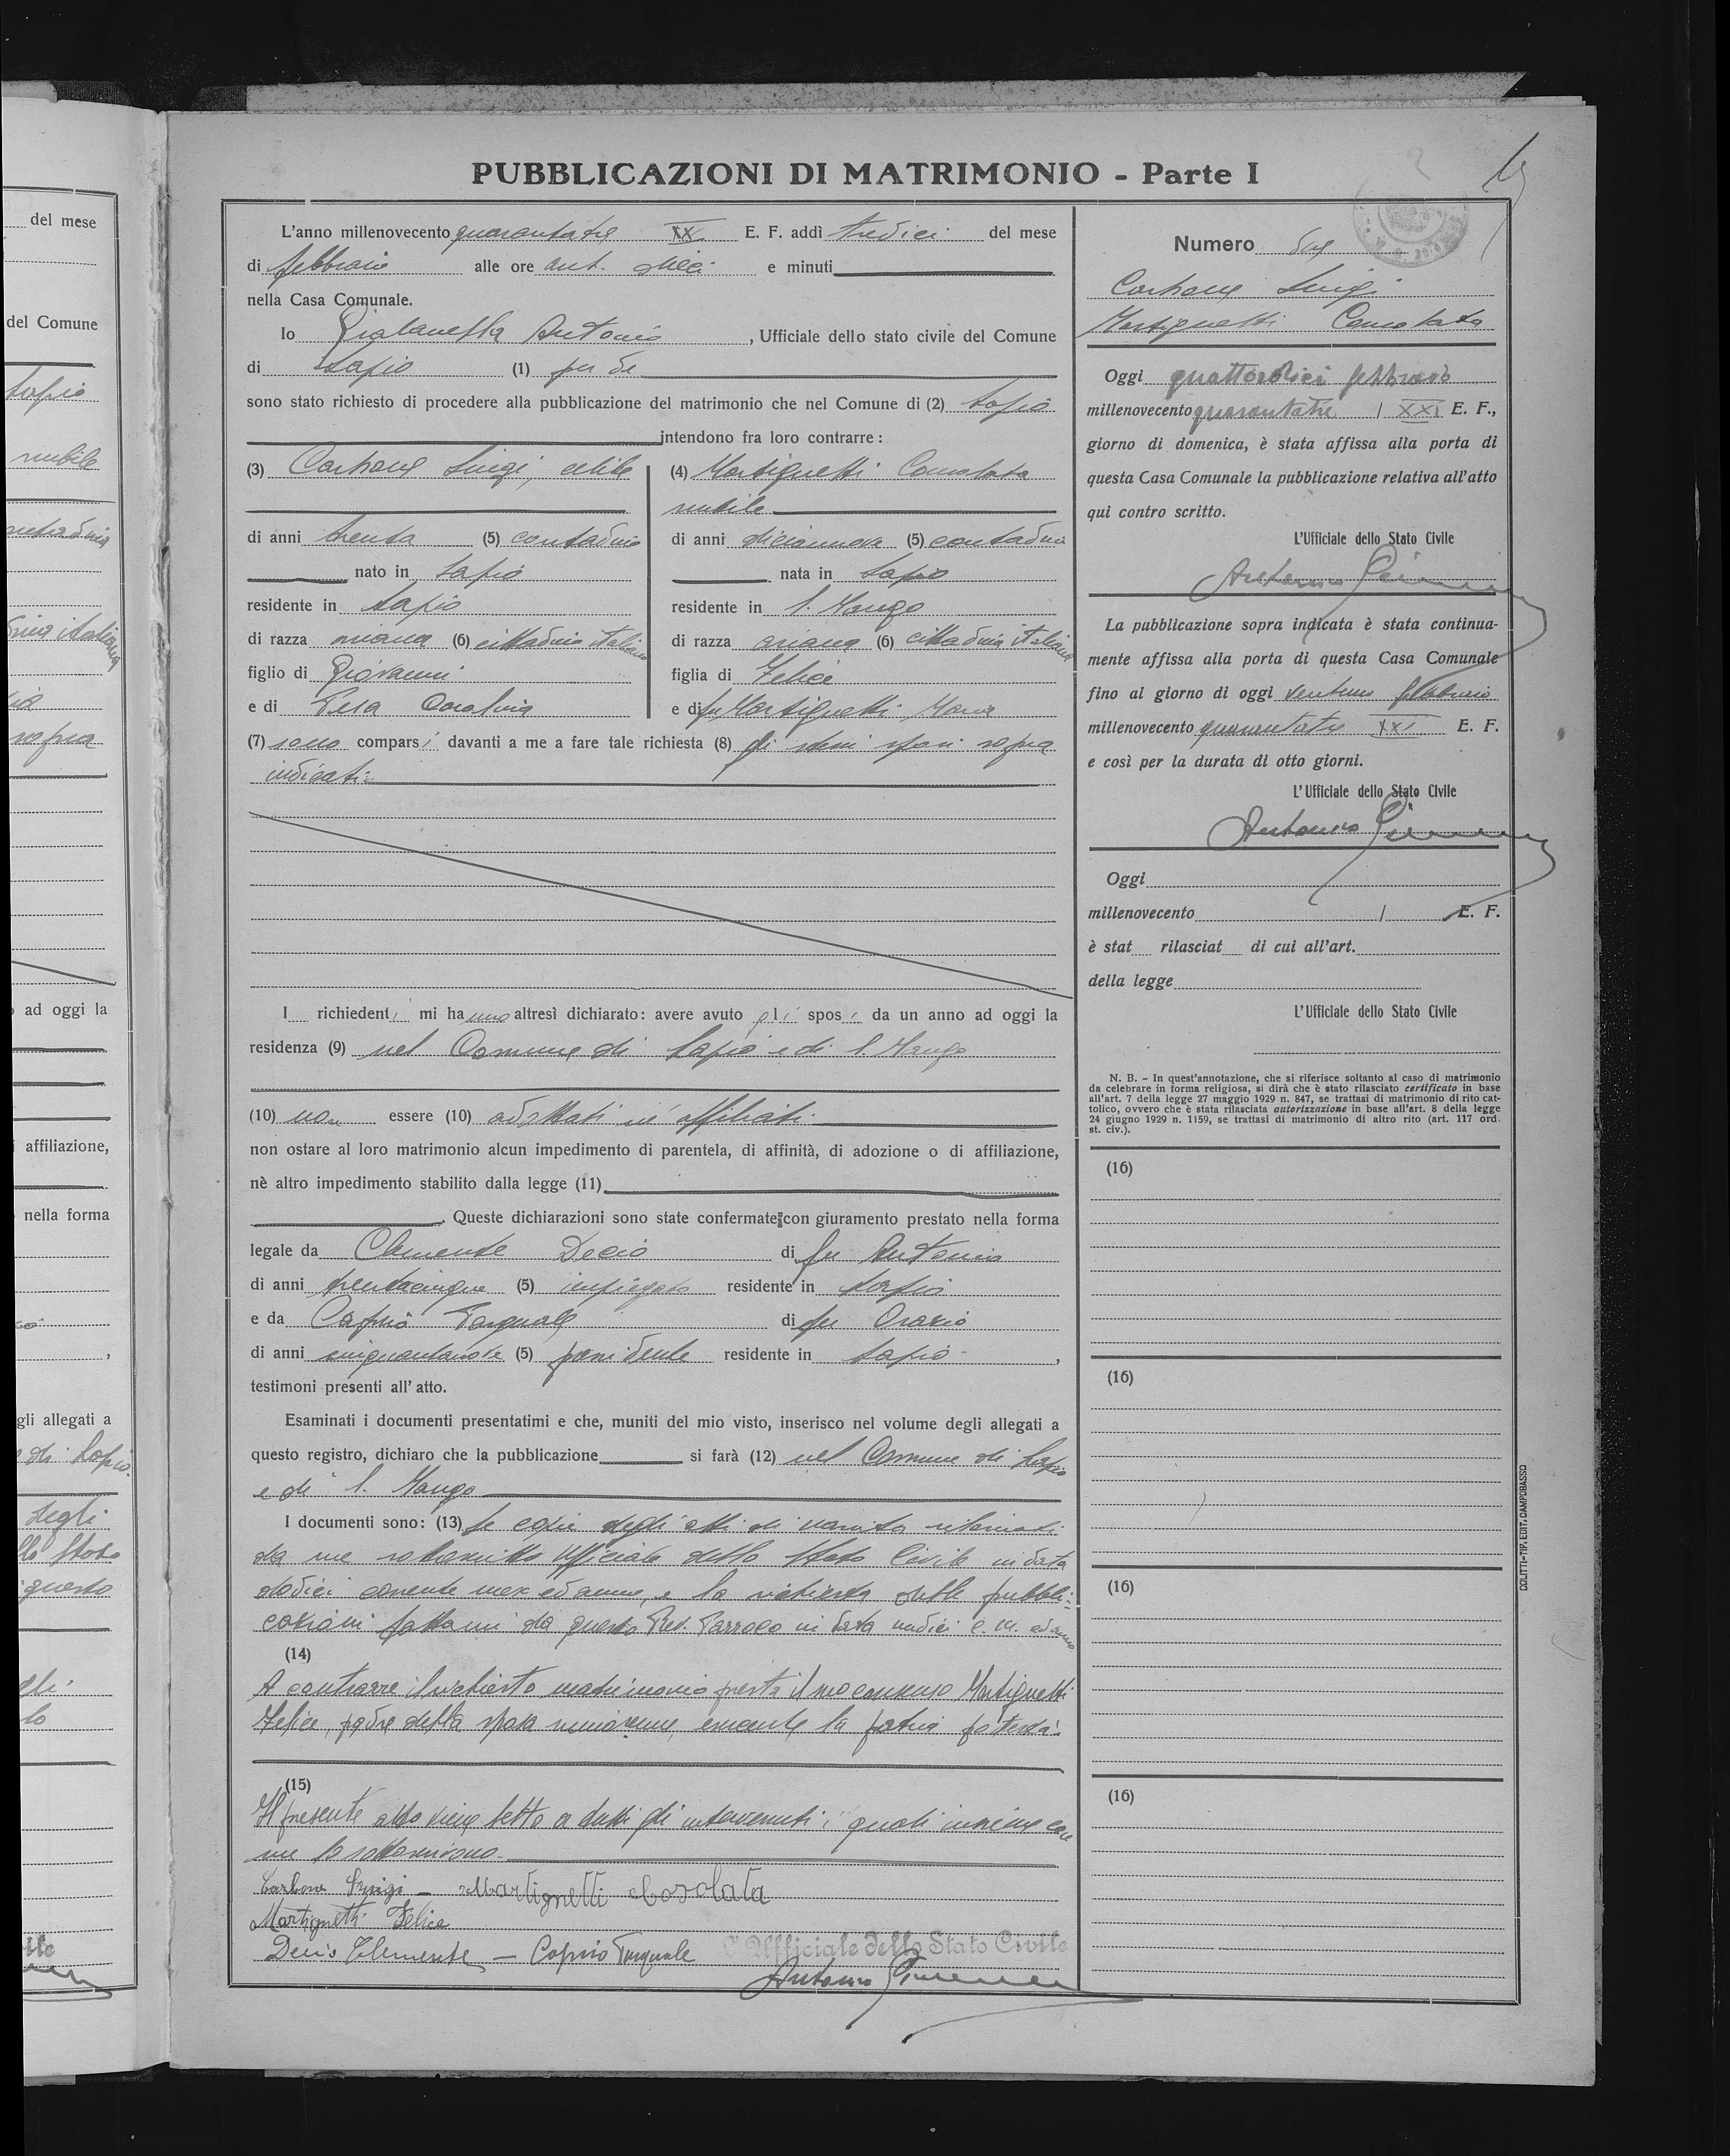 del mese
del Comune
Lapio
nubile
italiana
sopra
ad oggi la
affiliazione,
nella forma
gli allegati a
di Lapio.
degli
llo Stato
questo
PUBBLICAZIONI DI MATRIMONIO - Parte I
L'anno millenovecento quarantatre XX E. F. addì tredici del mese
di febbraio alle ore ant. dieci e minuti
nella Casa Comunale.
Io Antonio, Ufficiale dello stato civile del Comune
di Lapio (1)
sono stato richiesto di procedere alla pubblicazione del matrimonio che nel Comune di (2) Lapio
intendono fra loro contrarre:
(3) Carbone Luigi, celibe
di anni trenta (5) contadino
nato in Lapio
residente in Lapio
di razza ariana (6) cittadino italiano
figlio di Giovanni
e di
(4) Martignetti Consolata
nubile
di anni diciannove (5) contadina
nata in Lapio
residente in S. Mango
di razza ariana (6) cittadina italiana
figlia di Felice
e di fu Martignetti Maria
(7) sono comparsi davanti a me a fare tale richiesta (8) gli stessi sposi sopra
indicati:
I richiedenti mi hanno altresì dichiarato: avere avuto gli sposi da un anno ad oggi la
residenza (9) nel Comune di Lapio e di S. Mango
(10) non essere (10) adottati nè affiliati
non ostare al loro matrimonio alcun impedimento di parentela, di affinità, di adozione o di affiliazione,
nè altro impedimento stabilito dalla legge (11)
. Queste dichiarazioni sono state confermate con giuramento prestato nella forma
legale da Clemente Decio di fu Antonio
di anni trentacinque (5) impiegato residente in Lapio
e da Caprio Pasquale di fu Orazio
di anni cinquantanove (5) possidente residente in Lapio,
testimoni presenti all'atto.
Esaminati i documenti presentatimi e che, muniti del mio visto, inserisco nel volume degli allegati a
questo registro, dichiaro che la pubblicazione si farà (12) nel Comune di Lapio
e di S. Mango
I documenti sono: (13) le copie degli atti di nascita rilasciati
da me sottoscritto Ufficiale dello Stato Civile in data
dodici corrente mese ed anno, e la richiesta delle pubbli-
cazioni fattami da questo Rev. Parroco in data undici c. m. ed anno
(14)
A contrarre il richiesto matrimonio presta il suo consenso Martignetti
Felice, padre della sposa minorenne, esercente la patria potestà.
(15)
Il presente atto viene letto a tutti gli intervenuti i quali insieme con
me lo sottoscrivono.
Carbone Luigi - Martignetti Cosolata
Martignetti Felice
Decio Clemente - Caprio Pasquale L'Ufficiale dello Stato Civile
Antonio
Numero
Carbone Luigi
Martignetti Consolata
Oggi quattordici febbraio
millenovecento quarantatre / XXI E. F.,
giorno di domenica, è stata affissa alla porta di
questa Casa Comunale la pubblicazione relativa all'atto
qui contro scritto.
L'Ufficiale dello Stato Civile
Antonio
La pubblicazione sopra indicata è stata continua-
mente affissa alla porta di questa Casa Comunale
fino al giorno di oggi ventuno febbraio
millenovecento quarantatre XXI E. F.
e così per la durata di otto giorni.
L'Ufficiale dello Stato Civile
Antonio
Oggi
millenovecento / E. F.
è stat rilasciat di cui all'art.
della legge
L'Ufficiale dello Stato Civile
N. B. - In quest'annotazione, che si riferisce soltanto al caso di matrimonio
da celebrare in forma religiosa, si dirà che è stato rilasciato certificato in base
all'art. 7 della legge 27 maggio 1929 n. 847, se trattasi di matrimonio di rito cat-
tolico, ovvero che è stata rilasciata autorizzazione in base all'art. 8 della legge
24 giugno 1929 n. 1159, se trattasi di matrimonio di altro rito (art. 117 ord.
st. civ.).
(16)
(16)
(16)
(16)
COLITTI-TIP. EDIT. CAMPOBASSO